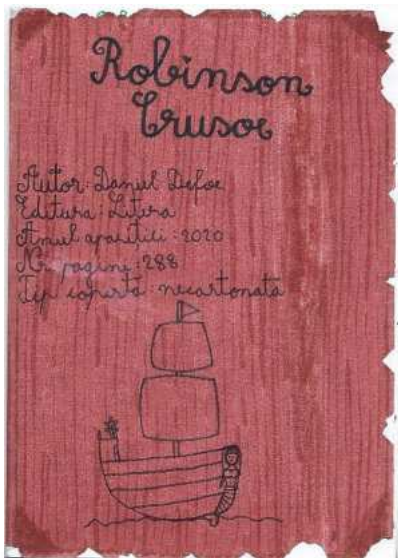 Robinson
Crusoe
Autor: Daniel Defoe
Editura: Litera
Anul apariției: 2020
Nr. pagini: 288
Tip copertă: necartonată